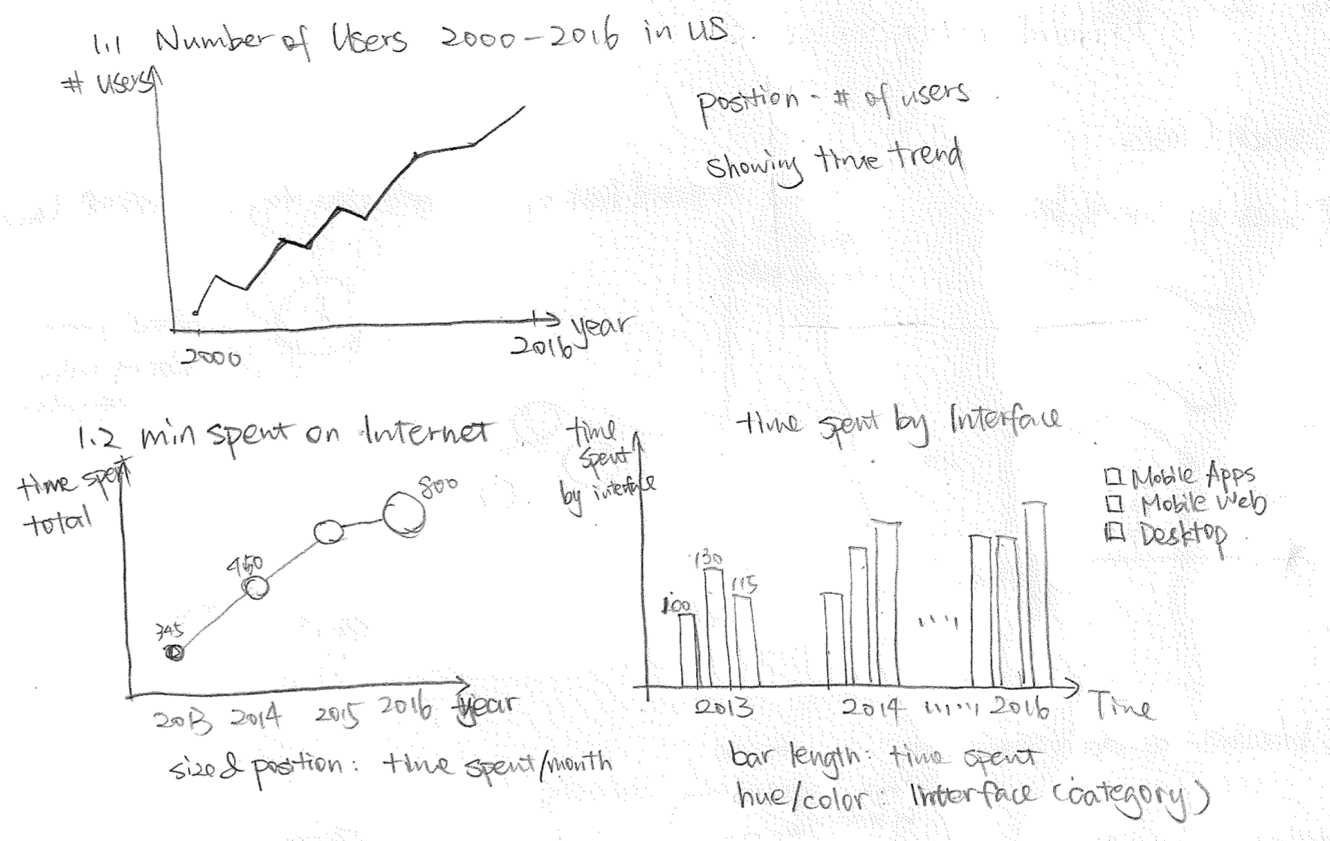 1.1 Number of Users 2000-2016 in US.
# users
position - # of users
showing time trend
year
2000
2016
1.2 min spent on Internet
time spent
total
800
450
345
2013 2014 2015 2016 year
size & position: time spent/month
time spent by Interface
time
spent
by interface
Mobile Apps
Mobile Web
Desktop
130
115
100
2013 2014 ...... 2016 Time
bar length: time spent
hue/color: Interface (category)